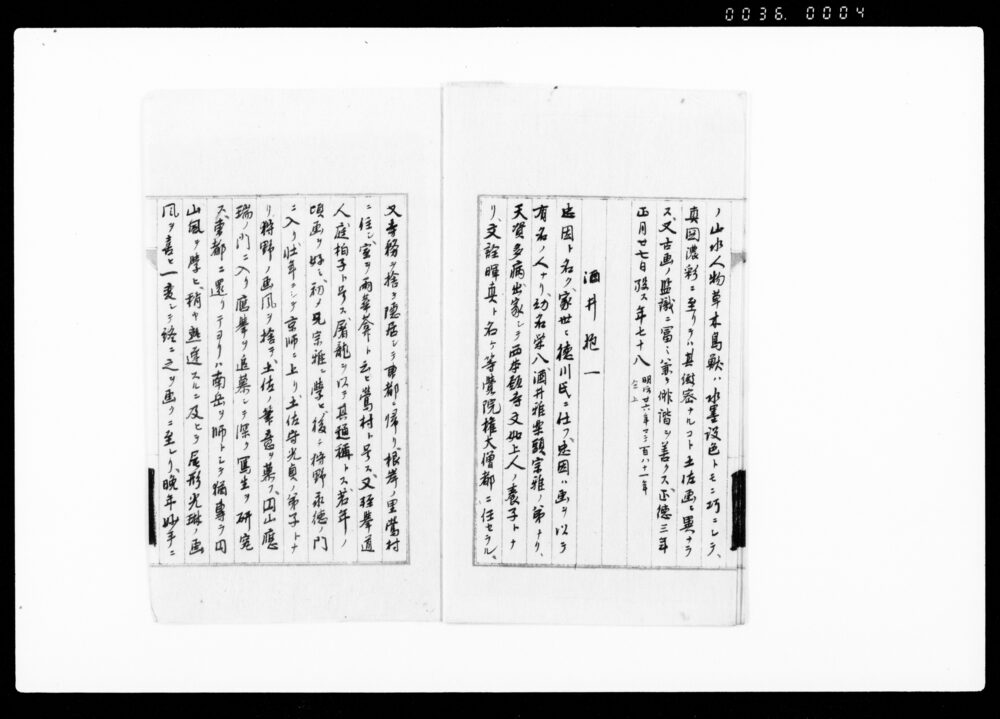 0036. 0004
ノ山水人物草木鳥獣ハ水墨設色トモニ巧ニシテ、
真図濃彩ニ至リテハ其緻密ナルコト土佐画ニ異ナラ
ス又古画ノ鑑識ニ富ミ兼テ俳諧ヲ善クス正徳三年
正月廿七日歿ス年七十八 明治廿六年マテ百八十一年
仝上
酒井抱一
忠因ト名ク家世々徳川氏ニ仕フ忠因ハ画ヲ以テ
有名ノ人ナリ幼名栄八酒井雅楽頭宗雅ノ弟ナリ、
天資多病出家シテ西本願寺文如上人ノ養子トナ
リ、文詮暉真ト名ケ等覚院権大僧都ニ任セラル。
又寺務ヲ捨テ隠居シテ東都ニ帰リ根岸ノ里鶯村
ニ住シ室ヲ雨華葊ト云ヒ鶯村ト号ス又軽挙道
人庭柏子ト号ス屠龍ヲ以テ其通称トス若年ノ
頃画ヲ好ミ初メ兄宗雅ニ学ヒ後ニ狩野永徳ノ門
ニ入リ壮年ニシテ京師ニ上リ土佐守光貞ノ弟子トナ
リ狩野ノ画風ヲ捨テ、土佐ノ筆意ヲ慕フ、円山應
瑞ノ門ニ入リ應挙ヲ追慕シテ深ク寫生ヲ研究
ス東都ニ還リテヨリハ南岳ヲ師トシテ猶専ラ円
山風ヲ学ヒ、稍々熟達スルニ及ヒテ尾形光琳ノ画
風ヲ喜ヒ一変シテ終ニ之ヲ画クニ至レリ、晩年妙手ニ